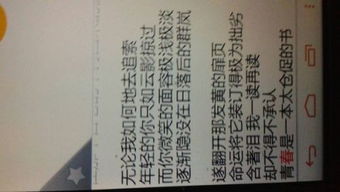 无论我如何地去追索
年轻的你只如云影掠过
而你微笑的面容极浅极淡
逐渐隐没在日落后的群岚
逐翻开那发黄的扉页
命运将它装订得极为拙劣
含著泪 我一读再读
却不得不承认
青春是一本太仓促的书